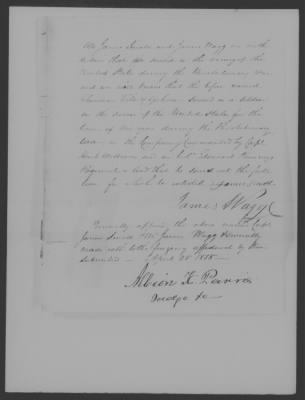 We James Small and James Wagg on oath
declare that we served in the army of the
United States during the Revolutionary War
and we also know that the before named
served as a soldier
in the service of the United States for the
term of one year during the Revolutionary
War in the Company Commanded by Capt
in Colo Edmund Phinneys
Regiment and that he served out the full
term for which he enlisted James Small
James Wagg
Personally appeared the above named
James Small & James Wagg & severally
made oath to the foregoing affidavit by them
subscribed April 28 1818
Albion K. Parris
Judge &c